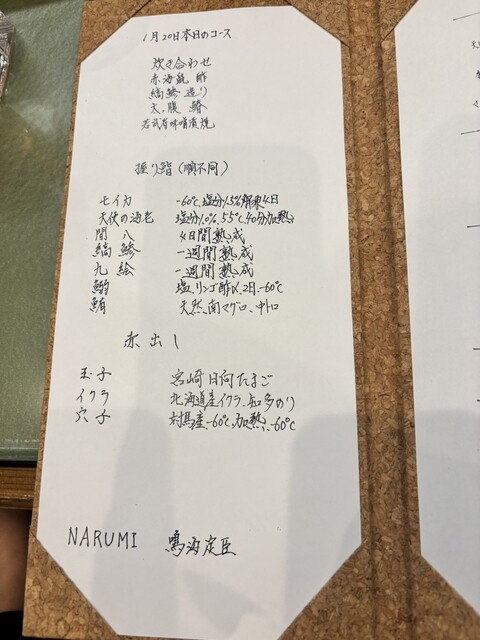 1月20日本日のコース
炊き合わせ
赤海鼠 酢
縞鯵 造り
太腹 鰆
若武者味噌漬焼
握り鮨(順不同)
モイカ -60℃、塩分1.5%解凍4日
天使の海老 塩分1.0%、55℃、40分加熱
間八 4日間熟成
縞鯵 一週間熟成
九絵 一週間熟成
鰯 塩、リンゴ酢〆、2日、-60℃
鮪 天然、南マグロ、中トロ
赤出し
玉子 宮崎 日向たまご
イクラ 北海道産イクラ、知多のり
穴子 対馬産、-60℃、加熱、-60℃
NARUMI 鳴海定臣